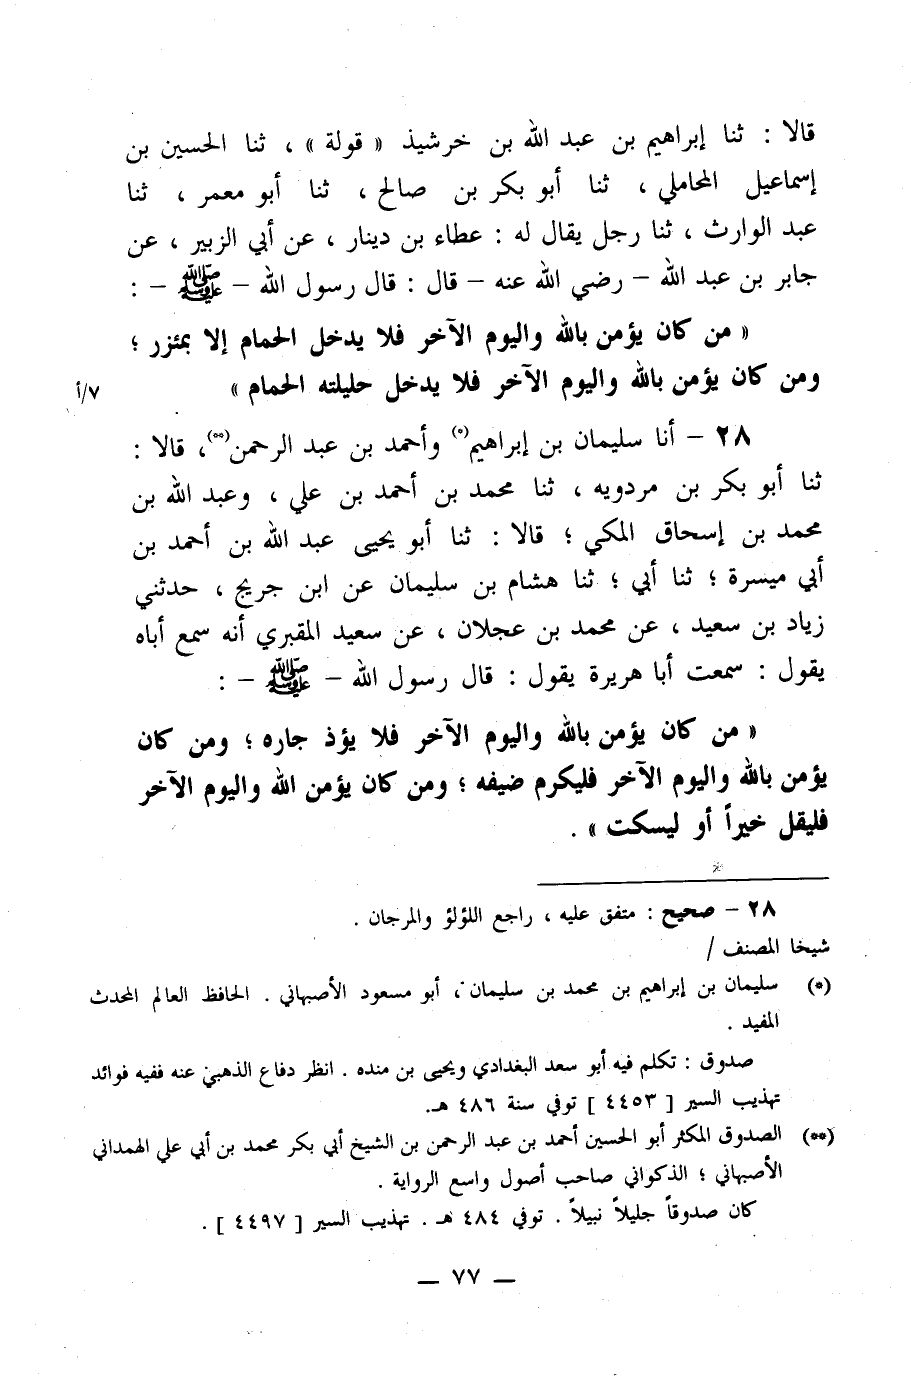 قالا : ثنا إبراهيم بن عبد الله بن خرشيذ « قولة » ، ثنا الحسين بن
إسماعيل المحاملي ، ثنا أبو بكر بن صالح ، ثنا أبو معمر ، ثنا
عبد الوارث ، ثنا رجل يقال له : عطاء بن دينار ، عن أبي الزبير ، عن
جابر بن عبد الله – رضي الله عنه – قال : قال رسول الله – ﷺ – :
« من كان يؤمن بالله واليوم الآخر فلا يدخل الحمام إلا بمئزر ؛
ومن كان يؤمن بالله واليوم الآخر فلا يدخل حليلته الحمام » ٧/أ
٢٨ – أنا سليمان بن إبراهيم(*) وأحمد بن عبد الرحمن(**)، قالا :
ثنا أبو بكر بن مردويه ، ثنا محمد بن أحمد بن علي ، وعبد الله بن
محمد بن إسحاق المكي ؛ قالا : ثنا أبو يحيى عبد الله بن أحمد بن
أبي ميسرة ؛ ثنا أبي ؛ ثنا هشام بن سليمان عن ابن جريج ، حدثني
زياد بن سعيد ، عن محمد بن عجلان ، عن سعيد المقبري أنه سمع أباه
يقول : سمعت أبا هريرة يقول : قال رسول الله – ﷺ – :
« من كان يؤمن بالله واليوم الآخر فلا يؤذ جاره ؛ ومن كان
يؤمن بالله واليوم الآخر فليكرم ضيفه ؛ ومن كان يؤمن الله واليوم الآخر
فليقل خيراً أو ليسكت » .
٢٨ – صحيح : متفق عليه ، راجع اللؤلؤ والمرجان .
شيخا المصنف /
(*) سليمان بن إبراهيم بن محمد بن سليمان ، أبو مسعود الأصبهاني . الحافظ العالم المحدث
المفيد .
صدوق : تكلم فيه أبو سعد البغدادي ويحيى بن منده . انظر دفاع الذهبي عنه ففيه فوائد
تهذيب السير [ ٤٤٥٣ ] توفي سنة ٤٨٦ هـ.
(**) الصدوق المكثر أبو الحسين أحمد بن عبد الرحمن بن الشيخ أبي بكر محمد بن أبي علي الهمداني
الأصبهاني ؛ الذكواني صاحب أصول واسع الرواية .
كان صدوقاً جليلاً نبيلاً . توفي ٤٨٤ هـ . تهذيب السير [ ٤٤٩٧ ] .
— ٧٧ —